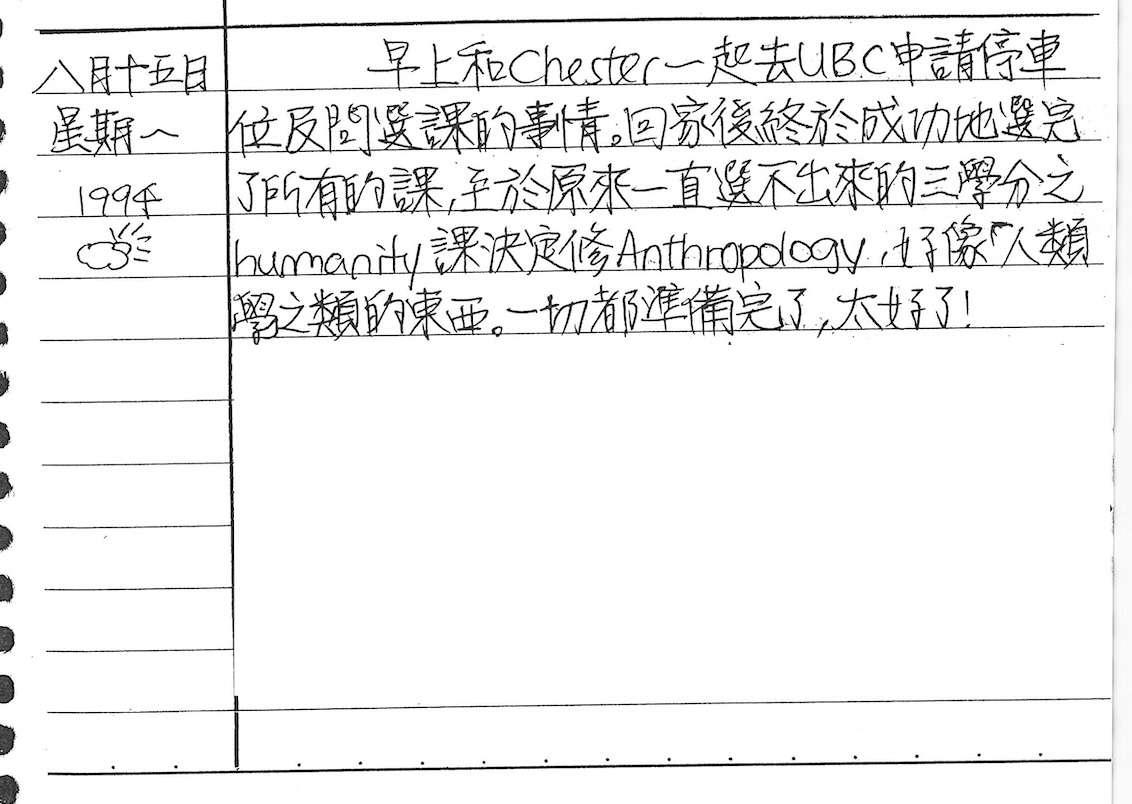 八月十五日
星期一
1994
早上和Chester一起去UBC申請停車
位及問選課的事情。回家後終於成功地選完
了所有的課,至於原來一直選不出來的三學分之
humanity課決定修Anthropology,好像「人類
學之類的東西。一切都準備完了,太好了!